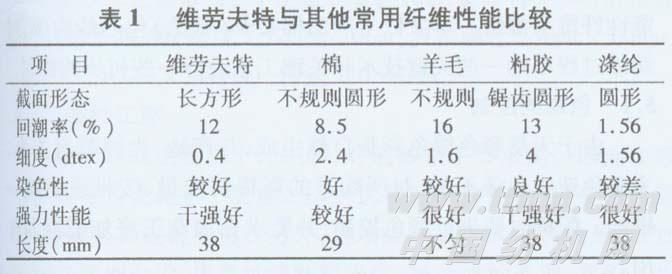 表1 维劳夫特与其他常用纤维性能比较
项 目 维劳夫特 棉 羊毛 粘胶 涤纶
截面形态 长方形 不规则圆形 不规则 锯齿圆形 圆形
回潮率(%) 12 8.5 16 13 1.56
细度(dtex) 0.4 2.4 1.6 4 1.56
染色性 较好 好 较好 良好 较差
强力性能 干强好 较好 很好 干强好 很好
长度(mm) 38 29 不匀 38 38
中国纺机网